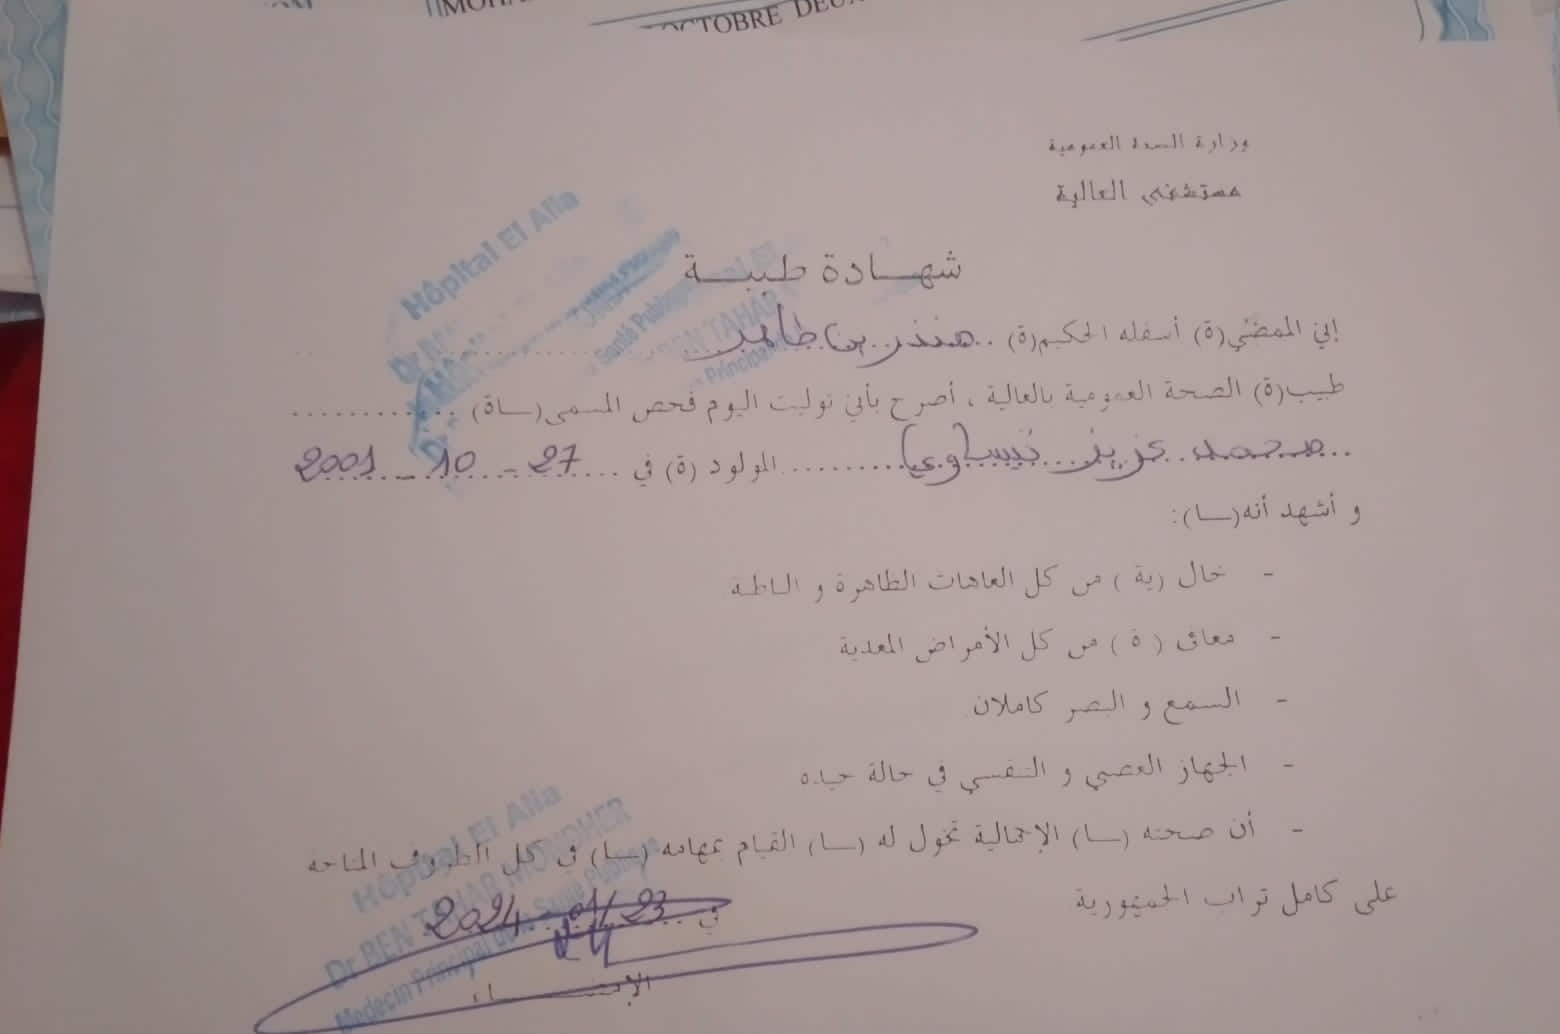 OCTOBRE
وزارة الصحة العمومية
مستشفى العالية
Hôpital El Alia
شهادة طبية
إني الممضي(ة) أسفله الحكيم(ة) ..منذر بن طاهر
طبيب(ة) الصحة العمومية بالعالية ، أصرح بأني توليت اليوم فحص المسمى(ـاة) ............
..محمد عزيز ......... المولود (ة) في .... 27 - 10 - 2001
و أشهد أنه(ـا):
- خال (ية ) من كل العاهات الظاهرة و الباطنة
- معافى ( ة ) من كل الأمراض المعدية
- السمع و البصر كاملان
- الجهاز العصبي و النفسي في حالة جيدة
- أن صحته (ـا) الإجمالية تخول له (ـا) القيام بمهامه (ـا) في كل الظروف المتاحة
على كامل تراب الجمهورية
في 23 2024
الإمضـــــــاء
Hôpital El Alia
Dr BEN TAHAR MONDHER
Medecin Principal de la Santé Publique